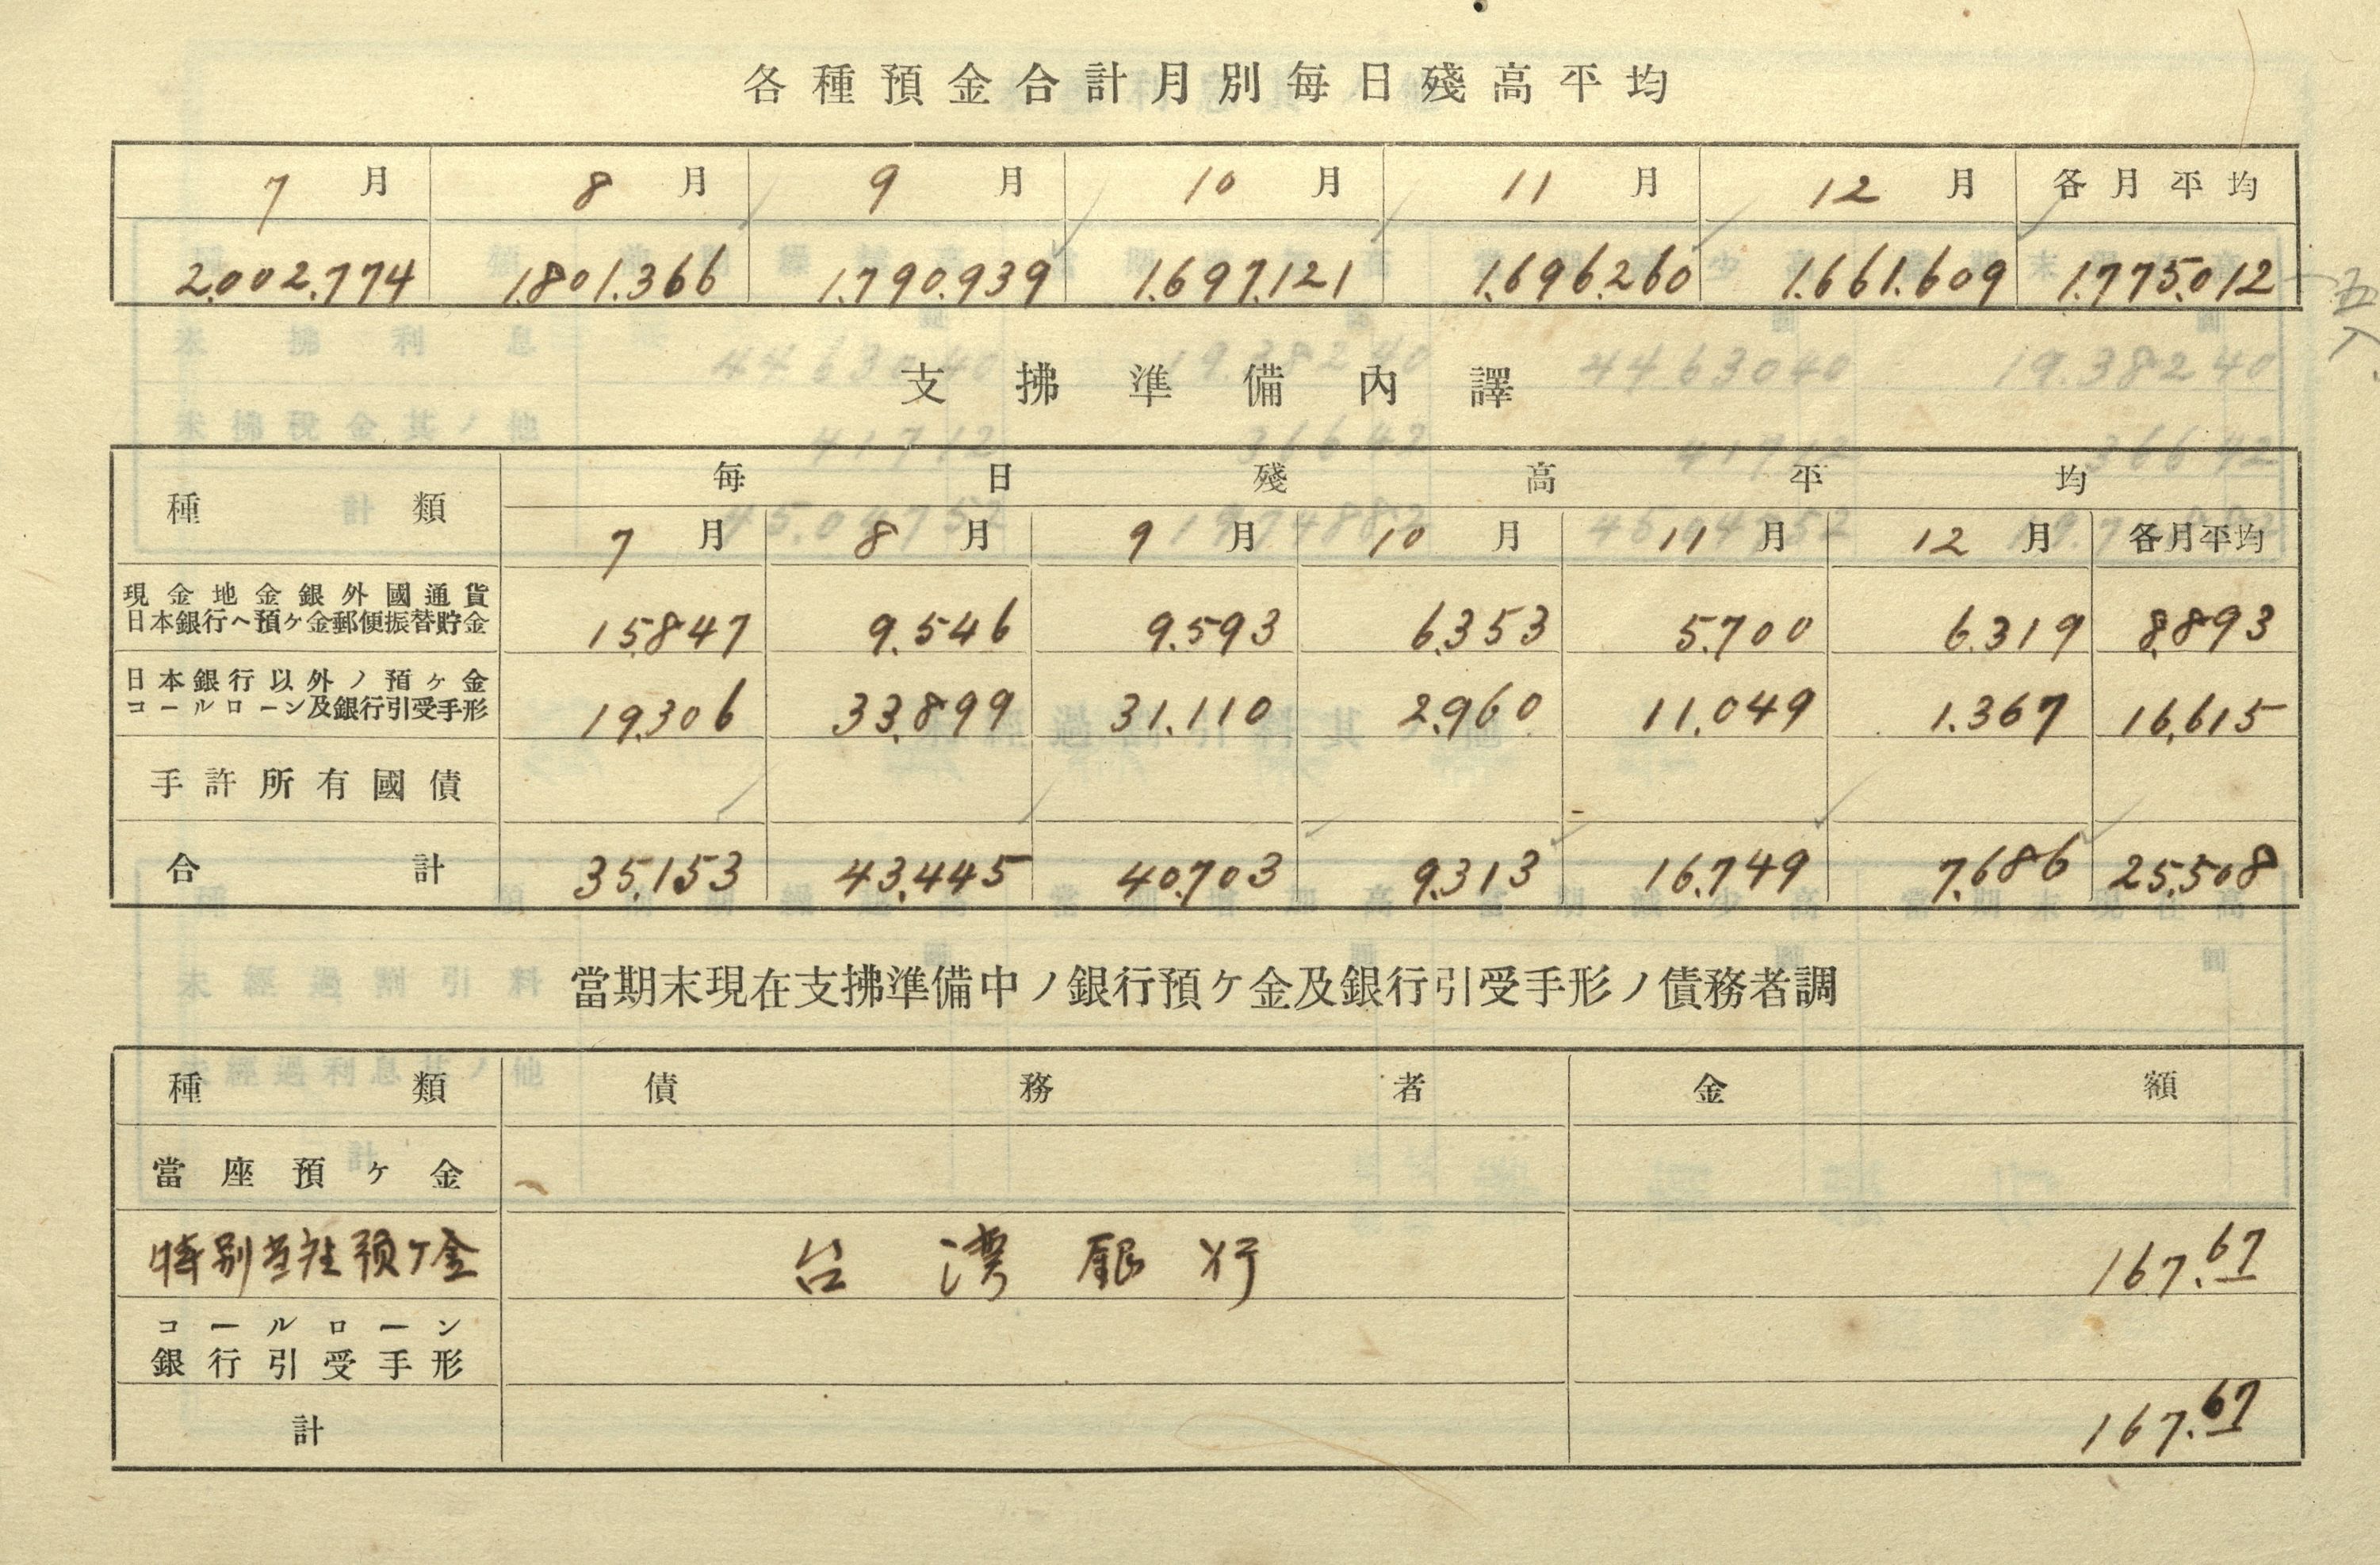 各種預金合計月別每日殘高平均
7月 8月 9月 10月 11月 12月 各月平均
2.002.774 1.801.366 1.790.939 1.697.121 1.696.260 1.661.609 1.775.012
五入
支拂準備內譯
種類 每日殘高平均
7月 8月 9月 10月 11月 12月 各月平均
現金地金銀外國通貨
日本銀行ヘ預ケ金郵便振替貯金 15.847 9.546 9.593 6.353 5.700 6.319 8.893
日本銀行以外ノ預ケ金
コールローン及銀行引受手形 19.306 33.899 31.110 2.960 11.049 1.367 16.615
手許所有國債
合計 35.153 43.445 40.703 9.313 16.749 7.686 25.508
當期末現在支拂準備中ノ銀行預ケ金及銀行引受手形ノ債務者調
種類 債務者 金額
當座預ケ金
特別当座預ケ金 台湾銀行 167.67
コールローン
銀行引受手形
計 167.67